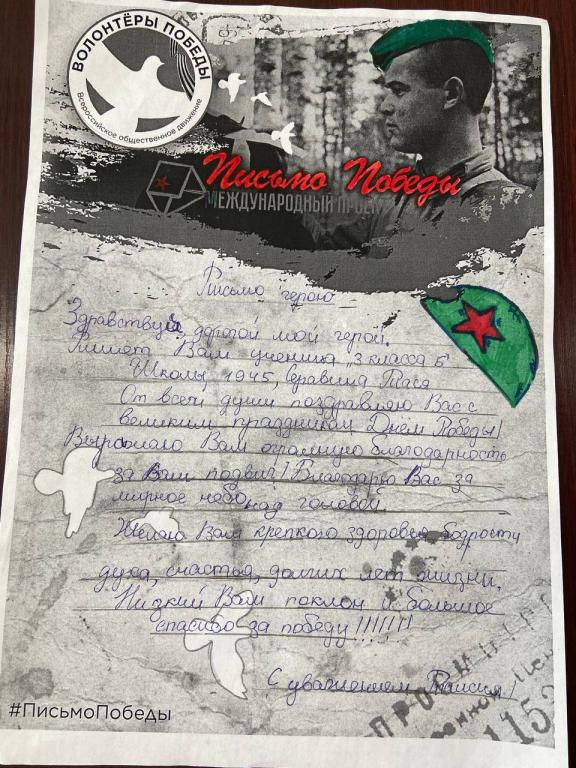 ВОЛОНТЁРЫ ПОБЕДЫ
Всероссийское общественное движение
Письмо Победы
МЕЖДУНАРОДНЫЙ ПРОЕКТ
Письмо герою
Здравствуй дорогой мой герой.
Пишет Вам ученица "3 класса Б"
Школы 1945, Серавина Тася
От всей души поздравляю Вас с
великим праздником Днем Победы!
Выражаю Вам огромную благодарность
за Вам подвиг! Благодарю Вас за
мирное небо над головой.
Желаю Вам крепкого здоровья, бодрости
духа, счастья, долгих лет жизни.
Низкий Вам поклон и большое
спасибо за победу!!!!!!!
С уважением Таисия!
#ПисьмоПобеды
1153